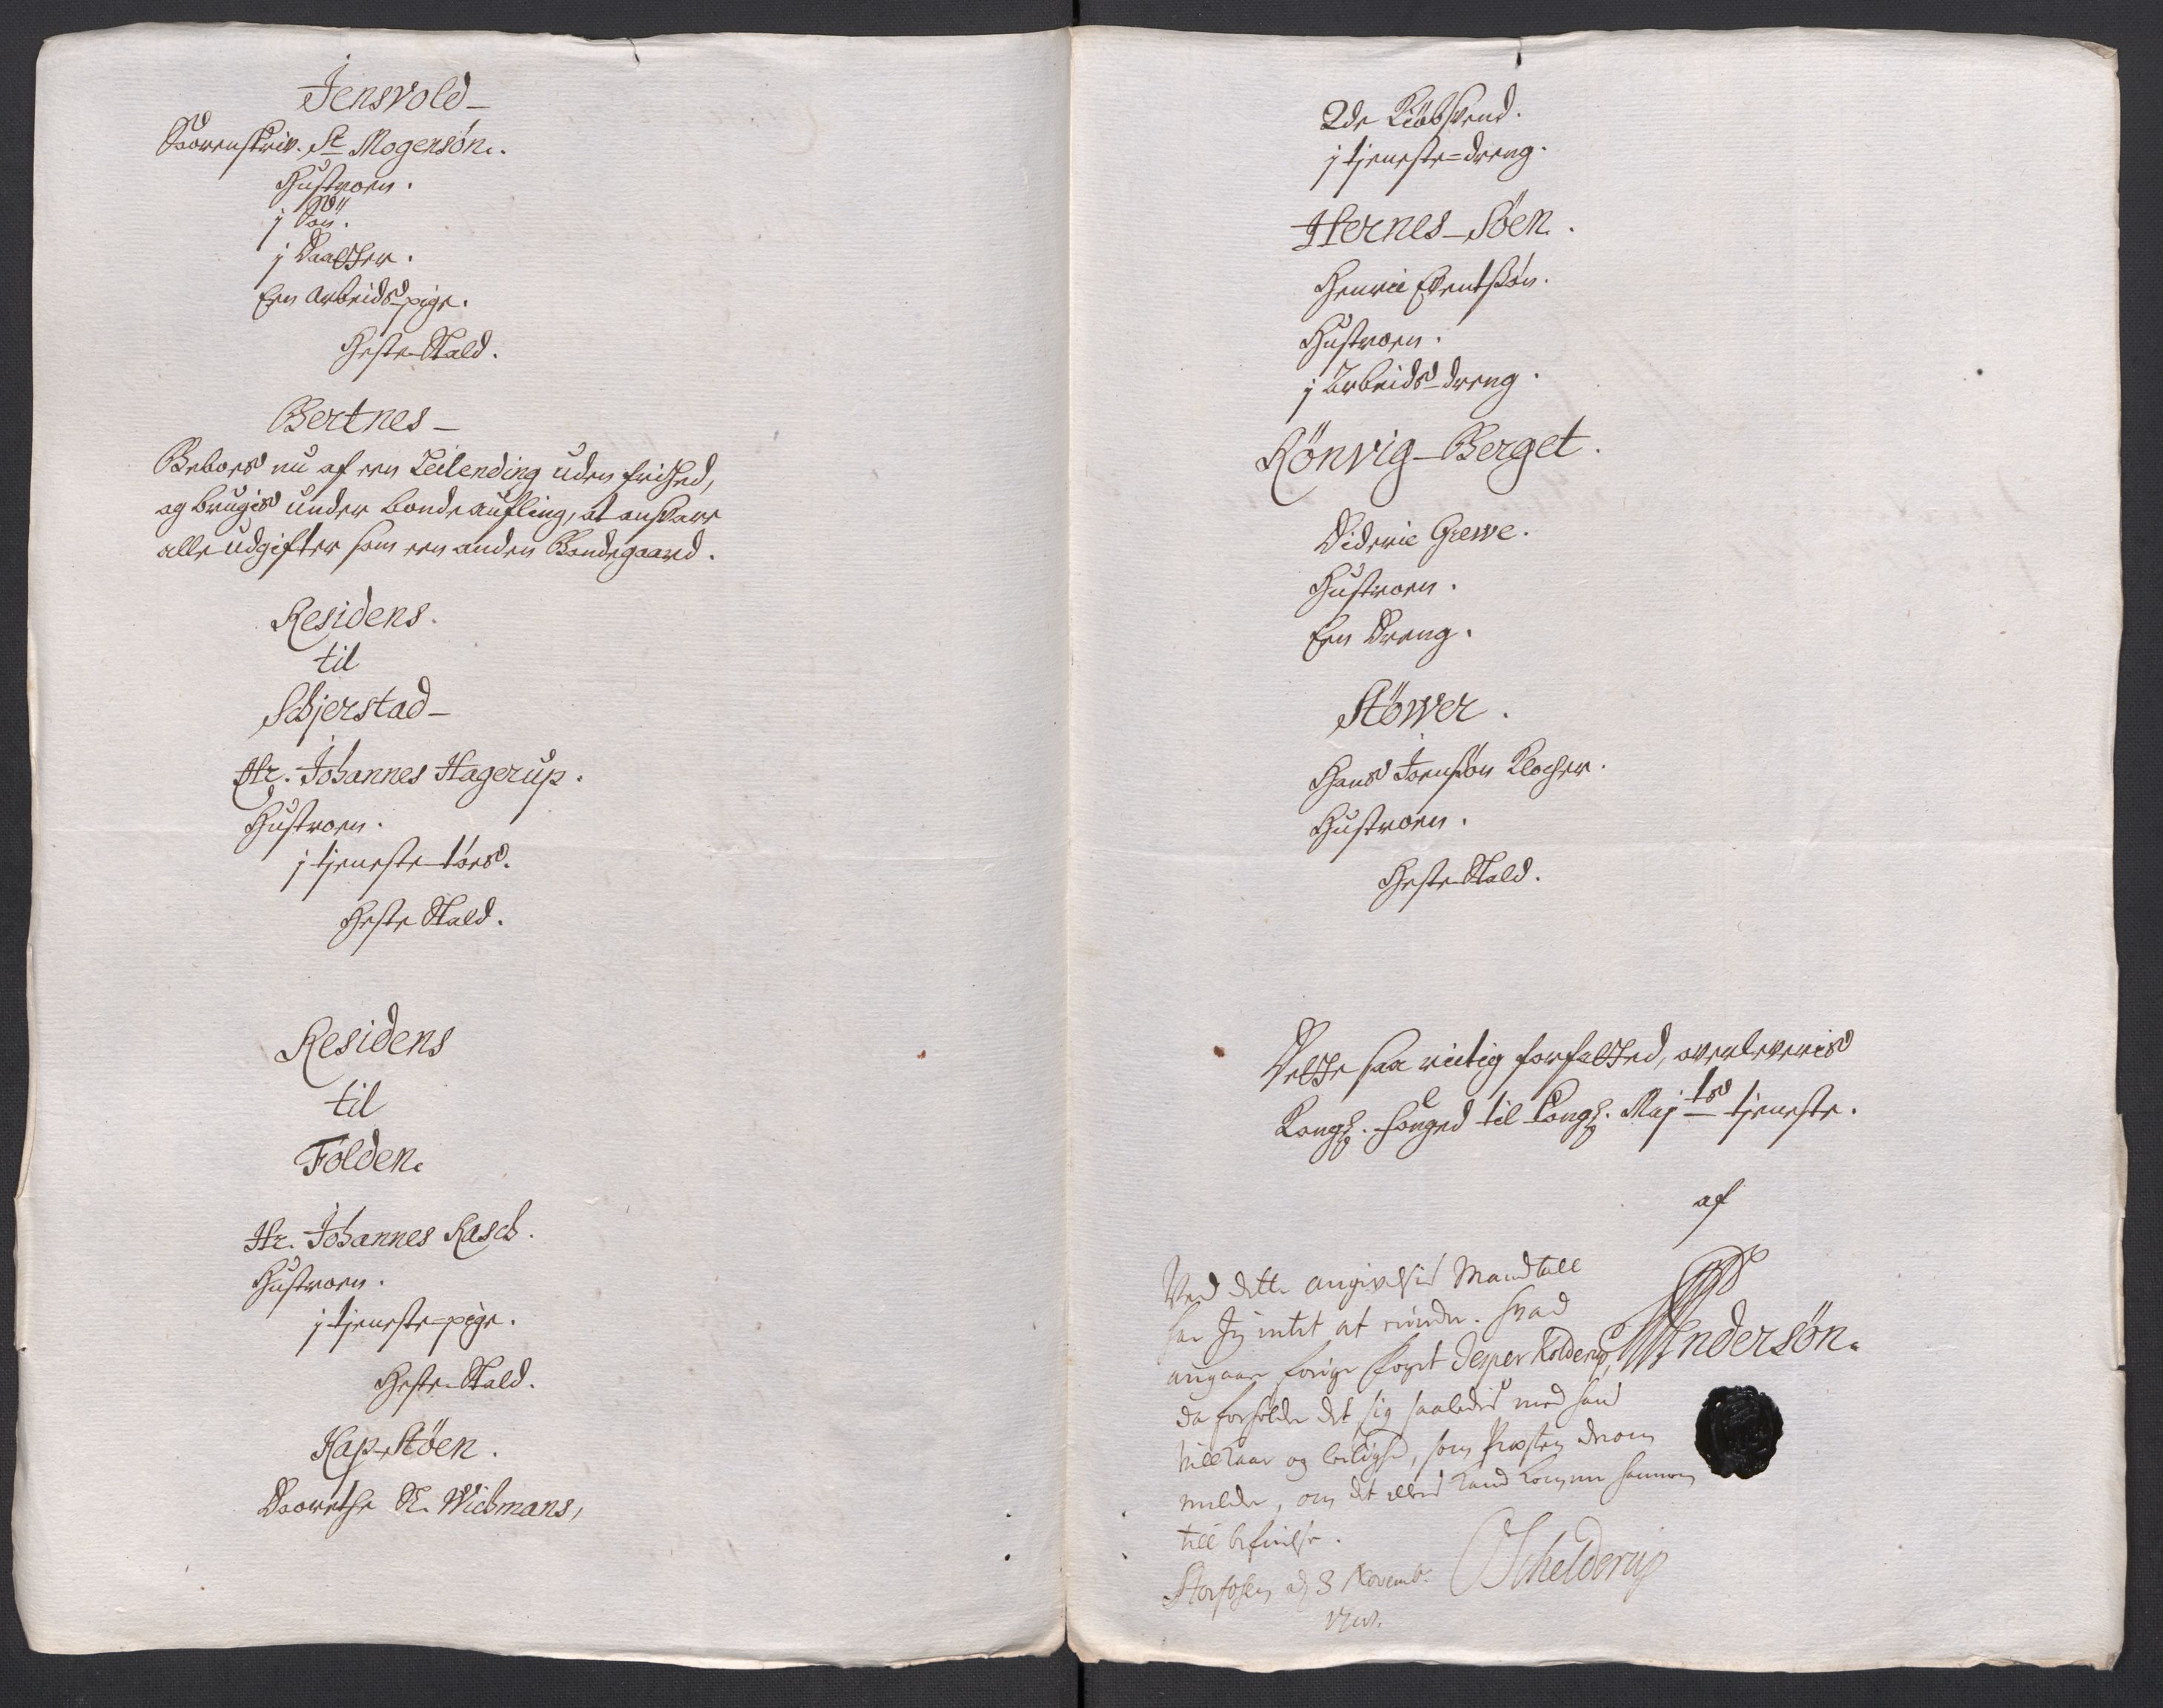 Jensvold
Soorenskriv. Sr. Mogensøn.
Hustroen.
j Søn.
j Daatter.
Een Arbeids-pige.
Heste Skald.
Bertnes
Beboes nu af een Leilending uden friehed,
og brugis under bondeaufling, at ansvare
alle udgifter som een anden Bondegaard.
Residens.
til
Schjerstad
Hr. Johannes Hagerup.
Hustroen.
j tjeneste-tøes.
Heste Skald.
Residens
til
Folden.
Hr. Johannes Rasch.
Hustroen.
j tjeneste-pige.
Heste-Skald.
Kap-Støen.
Doorethe Sl. Wichmans,
2de Kiøbsvend.
j tjeneste=dreng.
Hernes-Søen.
Henric Eventsøn.
Hustroen.
j Arbeids-dreng.
Rönvig-Berget.
Dideric Grewe.
Hustroen.
Een Dreng.
Støwer.
Hans Joensøn Klocher.
Hustroen.
Heste Skald.
Dette saa rictig forfatted, overleveris
Kongl. fouged til Kongl. Maj-ts tjeneste.
af
Andersøn.
Ved dette angivelsis Mandtall
har Jeg intet at . hvad
angaar forige foget Jesper Kolderup,
da forholder det sig saaledis med hans
villkaar og leilighed, som Præsten derom
melder, om det ellers kand komme hannom
till .
Storfosen d. 3 Novemb.
Schelderup